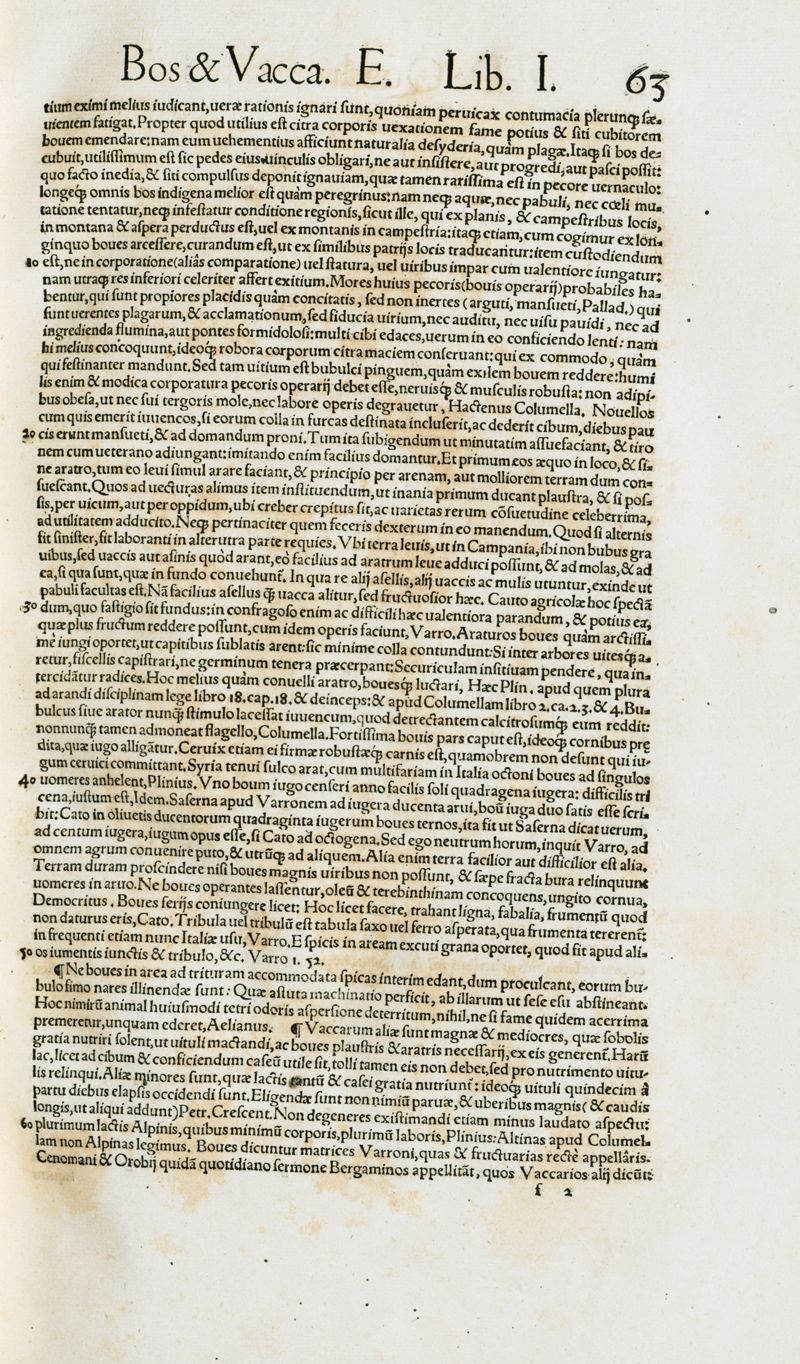 Bos & Vacca. E. Lib. I. 63
tium eximi melius iudicant, ueræ rationis ignari sunt, quoniam peruicax contumacia plerunq; sæ-
uientem fatigat. Propter quod utilius est citra corporis uexationem fame potius & siti cubitorem
bouem emendare: nam eum uehementius afficiunt naturalia desyderia, quàm plagæ. Itaq; si bos de-
cubuit, utilissimum est sic pedes eius uinculis obligari, ne aut insistere, aut progredi, aut pasci possit:
quo facto inedia, & siti compulsus deponit ignauiam, quæ tamen rarissima est in pecore uernaculo:
longeq; omnis bos indigena melior est quàm peregrinus: nam neq; aquæ, nec pabuli, nec cœli mu-
tatione tentatur, neq; infestatur conditione regionis, sicut ille, qui ex planis, & campestribus locis,
in montana & aspera perductus est, uel ex montanis in campestria: itaq; etiam, cum cogimur ex lon-
ginquo boues arcessere, curandum est, ut ex similibus patrijs locis traducantur: item custodiendum
10 est, ne in corporatione (aliâs comparatione) uel statura, uel uiribus impar cum ualentiore iungatur:
nam utraq; res inferiori celeriter affert exitium. Mores huius pecoris (bouis operarij) probabiles ha-
bentur, qui sunt propiores placidis quàm concitatis, sed non inertes (arguti, mansueti, Pallad.) qui
sunt uerentes plagarum, & acclamationum, sed fiducia uirium, nec auditu, nec uisu pauidi, nec ad
ingredienda flumina, aut pontes formidolosi: multi cibi edaces, uerum in eo conficiendo lenti: nam
hi melius concoquunt, ideoq; robora corporum citra maciem conseruant: qui ex commodo, quàm
qui festinanter mandunt. Sed tam uitium est bubulci pinguem, quàm exilem bouem reddere: humi
lis enim & modica corporatura pecoris operarij debet esse, neruisq; & musculis robusta: non adipi-
bus obesa, ut nec sui tergoris mole, nec labore operis degrauetur, Hactenus Columella. Nouellos
cum quis emerit iuuencos, si eorum colla in furcas destinata incluserit, ac dederit cibum, diebus pau
20 cis erunt mansueti, & ad domandum proni. Tum ita subigendum ut minutatim assuefaciant, & tiro
nem cum ueterano adiungant: imitando enim facilius domantur. Et primum eos æquo in loco, & si-
ne aratro, tum eo leui simul arare faciant, & principio per arenam, aut molliorem terram dum con-
suescant. Quos ad uecturas alimus item instituendum, ut inania primum ducant plaustra, & si pos-
sis, per uicum, aut per oppidum, ubi creber crepitus sit, ac uarietas rerum cõsuetudine celeberrima,
ad utilitatem adducito. Neq; pertinaciter quem feceris dexterum in eo manendum. Quod si alternis
fit sinister, fit laboranti in alterutra parte requies. Vbi terra leuis, ut in Campania, ibi non bubus gra
uibus, sed uaccis aut asinis quòd arant, eò facilius ad aratrum leue adduci possunt, & ad molas, & ad
ea, si qua sunt, quæ in fundo conuehunt̃. In qua re alij asellis, alij uaccis ac mulis utuntur, exinde ut
pabuli facultas est. Nã facilius asellus q̃ uacca alitur, sed fructuosior hæc. Cauto agricolæ hoc spectã
30 dum, quo fastigio sit fundus: in confragoso enim ac difficili hæc ualentiora parandum, & potius ea,
quæ plus fructum reddere possunt, cum idem operis faciunt, Varro. Araturos boues quàm arctissi-
mè iungi oportet, ut capitibus sublatis arent: sic minime colla contundunt: Si inter arbores uitesq; a-
retur, fiscellis capistrari, ne germinum tenera præcerpant: Securiculam insitiuam pendere, qua in-
tercidãtur radices. Hoc melius quàm conuelli aratro, bouesq; luctari, Hæc Plin. apud quem plura
ad arandi disciplinam lege libro 18. cap. 18. & deinceps: & apud Columellam libro 2. ca. 2. 3. & 4. Bu-
bulcus siue arator nunq̃ stimulo lacessat iuuencum, quod detrectantem calcitrosumq; eum reddit:
nonnunq̃ tamen admoneat flagello, Columella. Fortissima bouis pars caput est, ideoq; cornibus pre
dita, quæ iugo alligãtur. Ceruix etiam ei firmæ robustæq; carnis est, quamobrem non desunt qui iu-
gum ceruici committant. Syria tenui sulco arat, cum multifariam in Italia octoni boues ad singulos
40 uomeres anhelent, Plinius. Vno boum iugo censeri anno facilis soli quadragena iugera: difficilis tri
cena, iustum est, Idem. Saserna apud Varronem ad iugera ducenta arui, boũ iuga duo satis esse scri-
bit: Cato in oliuetis ducentorum quadraginta iugerum boues ternos, ita fit ut Saserna dicat uerum,
ad centum iugera, iugum opus esse, si Cato ad octogena. Sed ego neutrum horum, inquit Varro, ad
omnem agrum conuenire puto, & utrũq; ad aliquem. Alia enim terra facilior aut difficilior est alia.
Terram duram proscindere nisi boues magnis uiribus non possunt, & sæpe fracta bura relinquunt
uomeres in aruo. Ne boues operantes lassentur, oleũ & terebinthinam concoquens, ungito cornua,
Democritus. Boues ferijs coniungere licet: Hoc licet facere, trahant ligna, fabalia, frumentũ quod
non daturus eris, Cato. Tribula uel tribulũ est tabula saxo uel ferro asperata, qua frumenta tererent̃:
in frequenti etiam nunc Italiæ usu, Varro. E spicis in aream excuti grana oportet, quod fit apud ali-
50 os iumentis iunctis & tribulo, &c. Varro 1. 52.
¶ Ne boues in area ad trituram accommodata spicas interim edant, dum proculcant, eorum bu-
bulo fimo nares illinendæ sunt: Quæ astuta machinatio perficit, ab illarum ut sese esu abstineant.
Hoc nimirũ animal huiusmodi tetri odoris aspersione deterritum, nihil, ne si fame quidem acerrima
premeretur, unquam ederet, Aelianus. ¶ Vaccarum aliæ sunt magnæ & mediocres, quæ sobolis
gratia nutriri solent, ut uituli mactandi, ac boues plaustris & aratris necessarij, ex eis generent̃. Harũ
lac, licet ad cibum & conficiendum caseũ utile sit, tolli tamen eis non debet, sed pro nutrimento uitu-
lis relinqui. Aliæ minores sunt, quæ lactis tantũ & casei gratia nutriunt̃: ideoq; uituli quindecim à
partu diebus elapsis occidendi sunt. Eligendæ sunt non nimiũ paruæ, & uberibus magnis (& caudis
longis, ut aliqui addunt) Petr. Crescent. Non degeneres existimandi etiam minus laudato aspectu:
60 plurimum lactis Alpinis, quibus minimũ corporis, plurimũ laboris, Plinius: Altinas apud Columel-
lam non Alpinas legimus. Boues dicuntur matrices Varroni, quas & fructuarias rectè appellâris.
Cenomani & Orobij quidã quotidiano sermone Bergaminos appellitãt, quos Vaccarios alij dicũt:
f 2